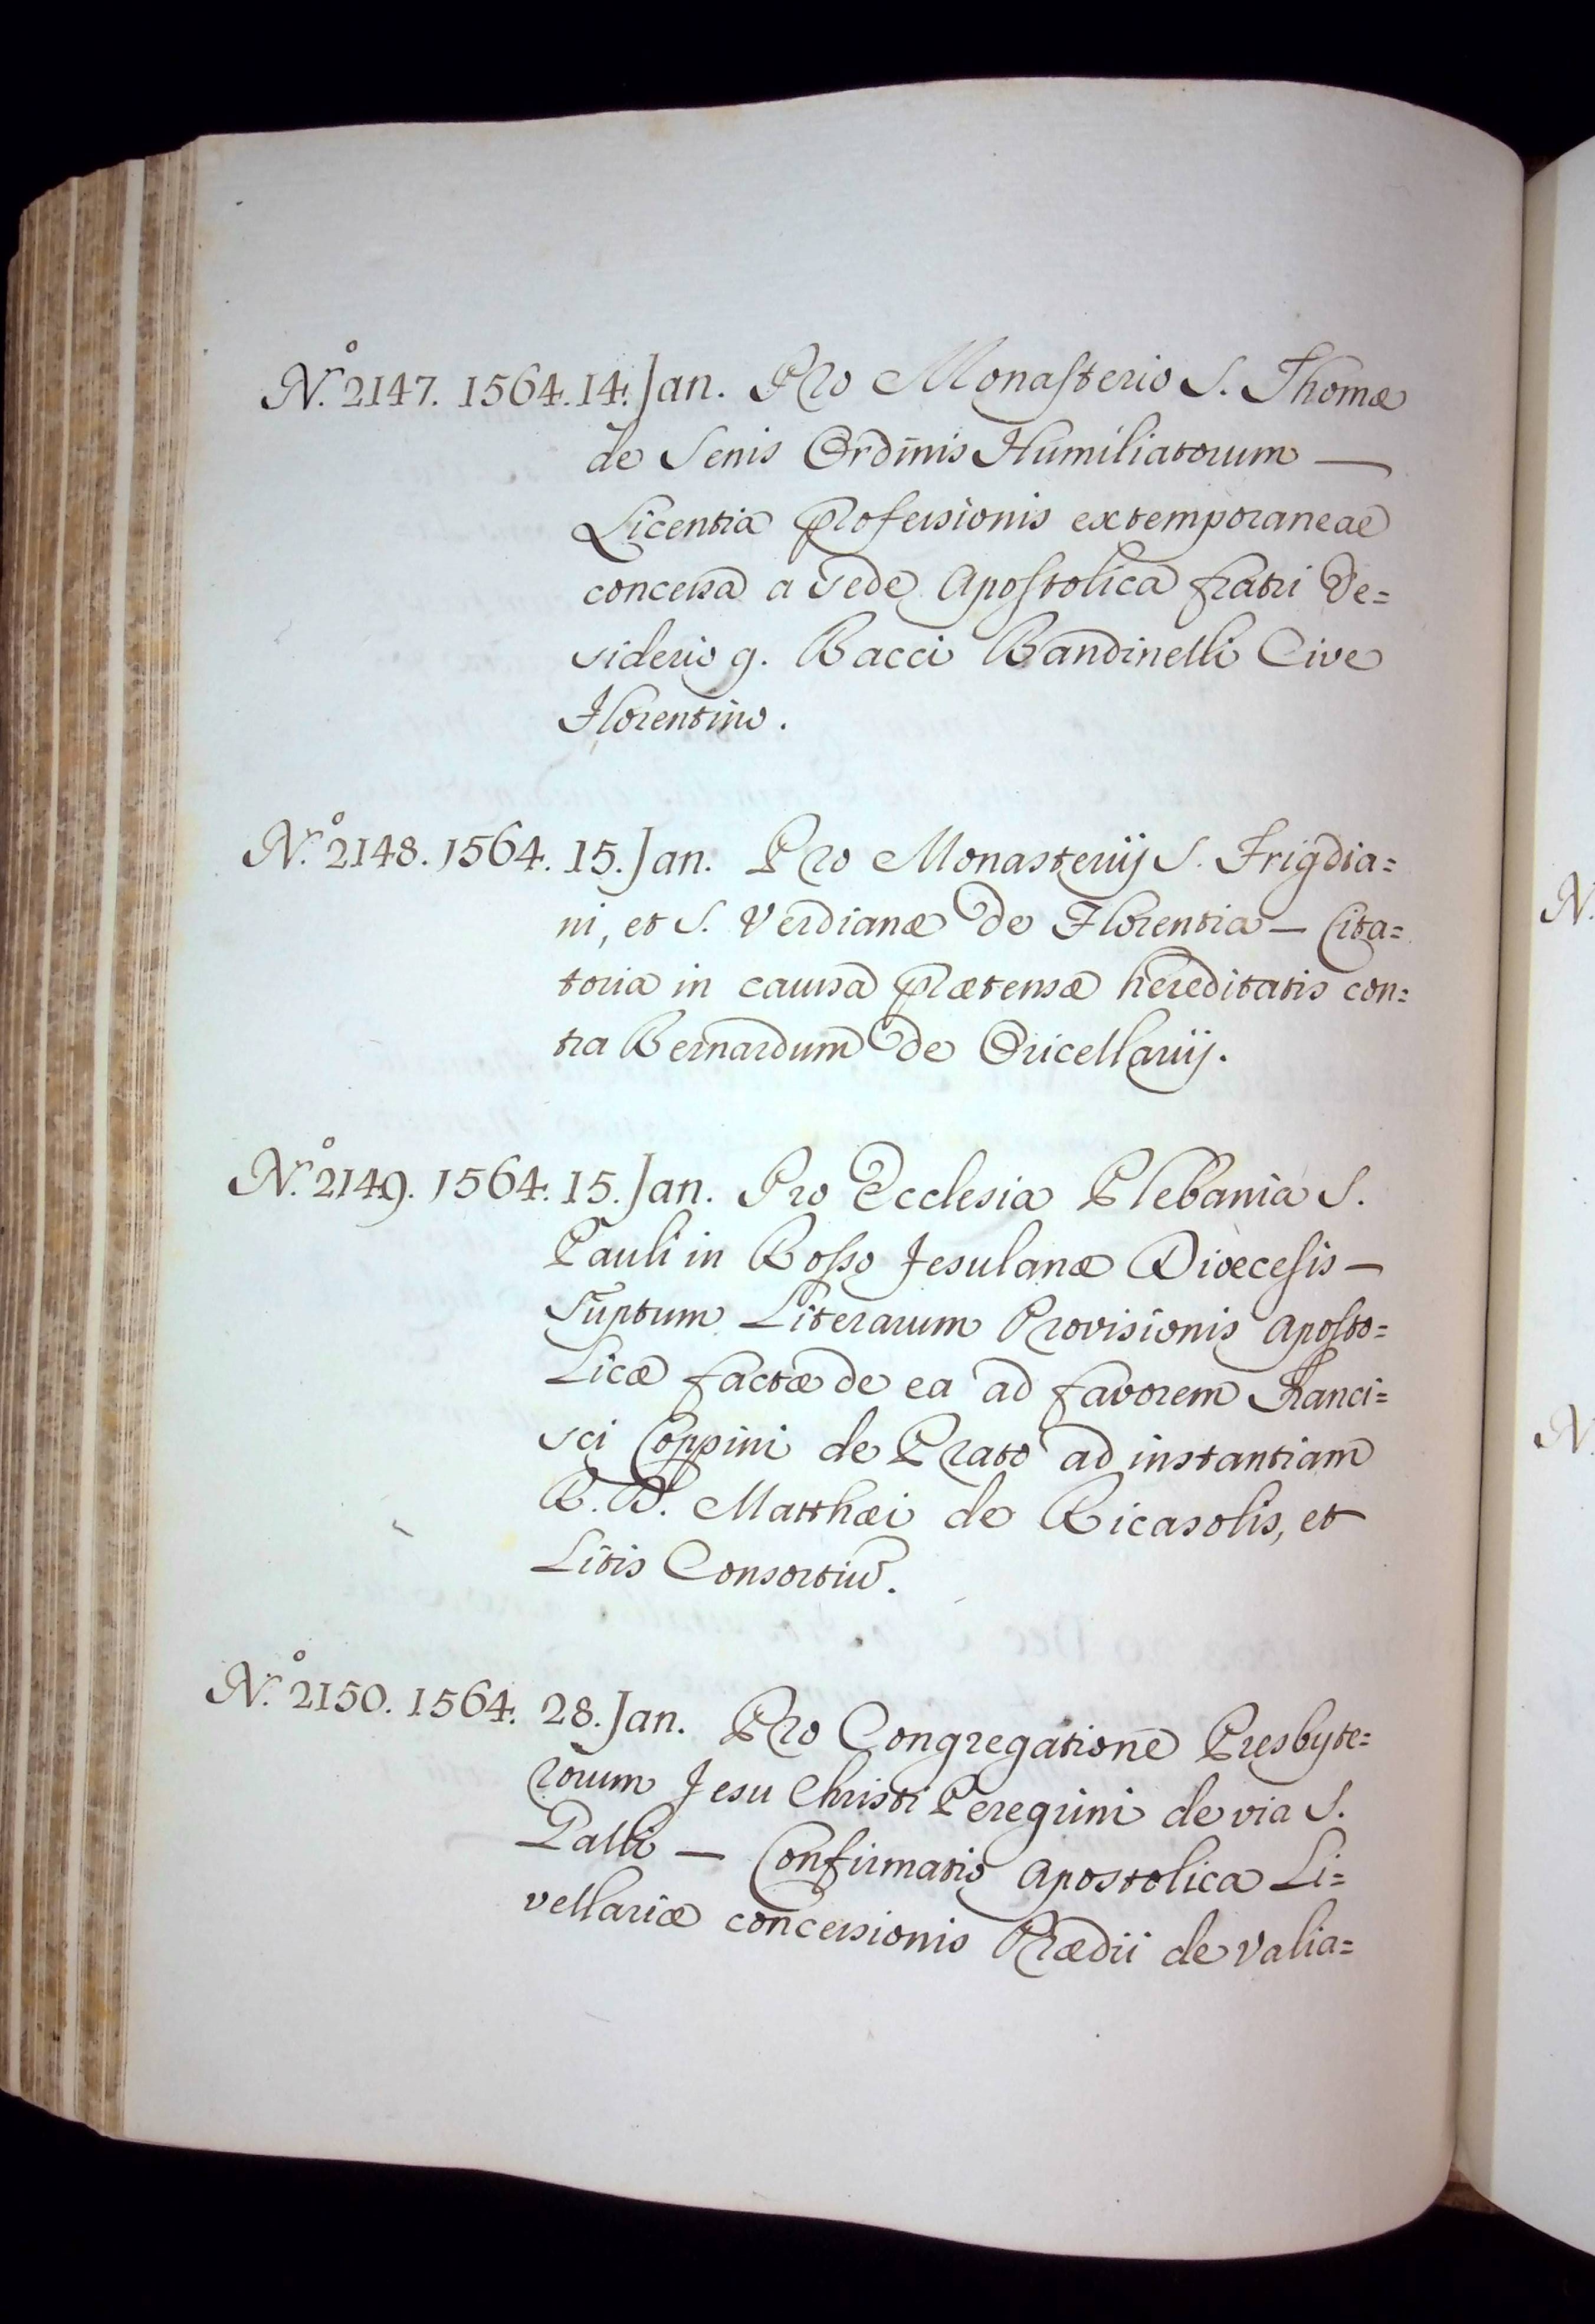 N.º 2147. 1564. 14. Jan. Pro Monasterio S. Thomæ
de Senis Ordinis Humiliatorum —
Licentia professionis extemporaneae
concessa a sede Apostolica fratri De=
siderio q. Bacci Bandinelli Cive
Florentino.
N.º 2148. 1564. 15. Jan. Pro Monasterijs S. Frigdia=
ni, et S. Verdianæ de Florentia — Cita=
toria in causa prætensæ hereditatis con=
tra Bernardum de Oricellarijs.
N.º 2149. 1564. 15. Jan. Pro Ecclesia Plebania S.
Pauli in Rosso Fesulanæ Diœcesis —
Suptum Literarum Provisionis Aposto=
licæ factæ de ea ad favorem Franci=
sci Coppini de Prato ad instantiam
R. D. Matthæi de Ricasolis, et
Litis Consortiũ.
N.º 2150. 1564. 28. Jan. Pro Congregatione Presbyte=
rorum Jesu Christi Peregrini de via S.
Galli — Confirmatio Apostolica Li=
vellariæ concessionis Prædii de Valia=
N.
N.